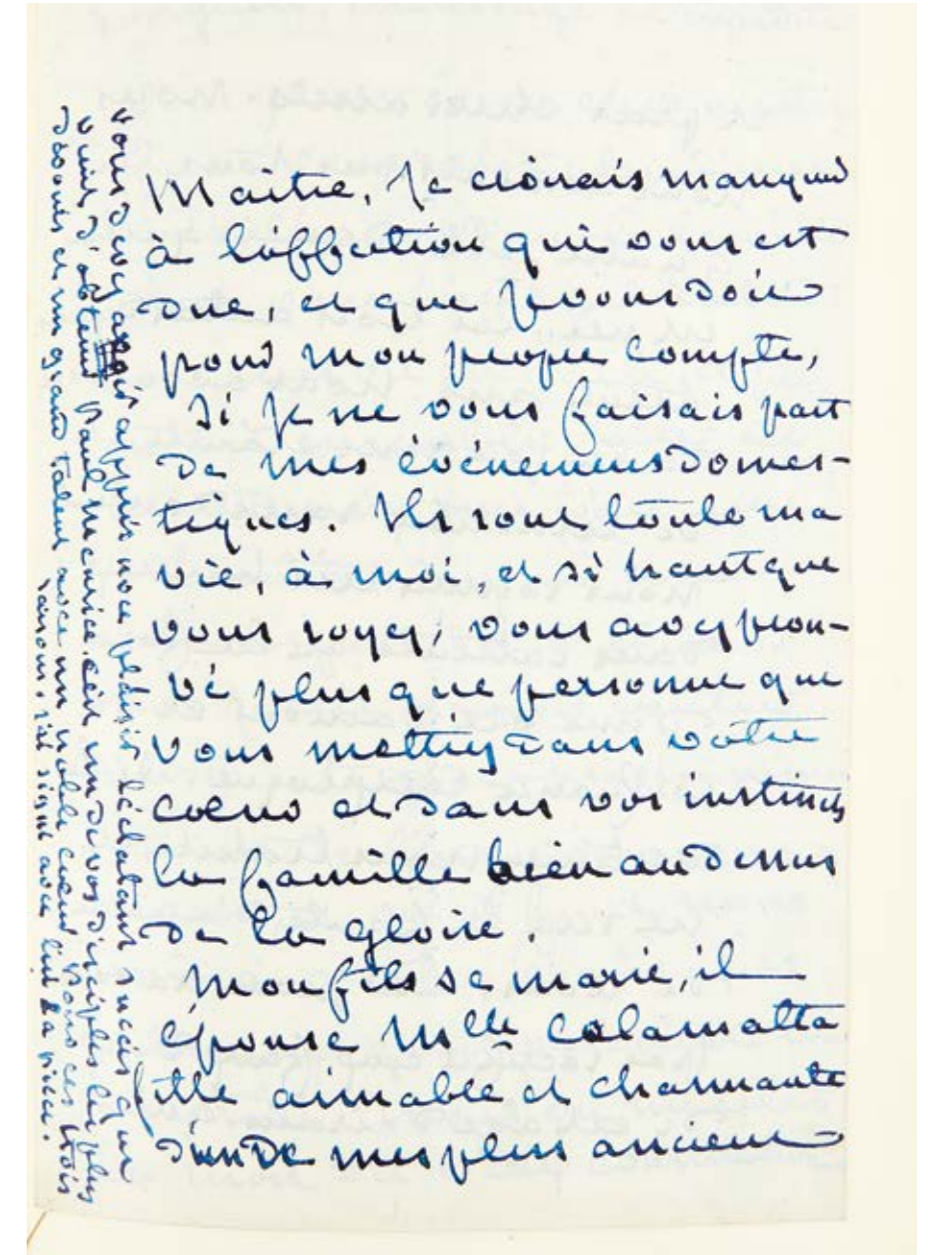 Maitre, Je croirais manquer
à l'affection qui vous est
due, et que je vous dois
pour mon propre compte,
si je ne vous faisais part
de mes évènemens domes-
tiques. Ils sont toute ma
vie, à moi, et si haut que
vous soyez, vous avez prou-
vé plus que personne que
vous mettiez dans votre
cœur et dans vos instincts
la famille bien au dessus
de la gloire.
Mon fils se marie, il
épouse Mlle Calamatta
fille aimable et charmante
d'un de mes plus anciens
Vous avez appris avec plaisir l'éclatant succès que
vient d'obtenir Paul Meurice c'est un de vos disciples les plus
dévoués et un grand talent avec un noble cœur pour ces trois
raisons, j'ai signé avec lui sa pièce.